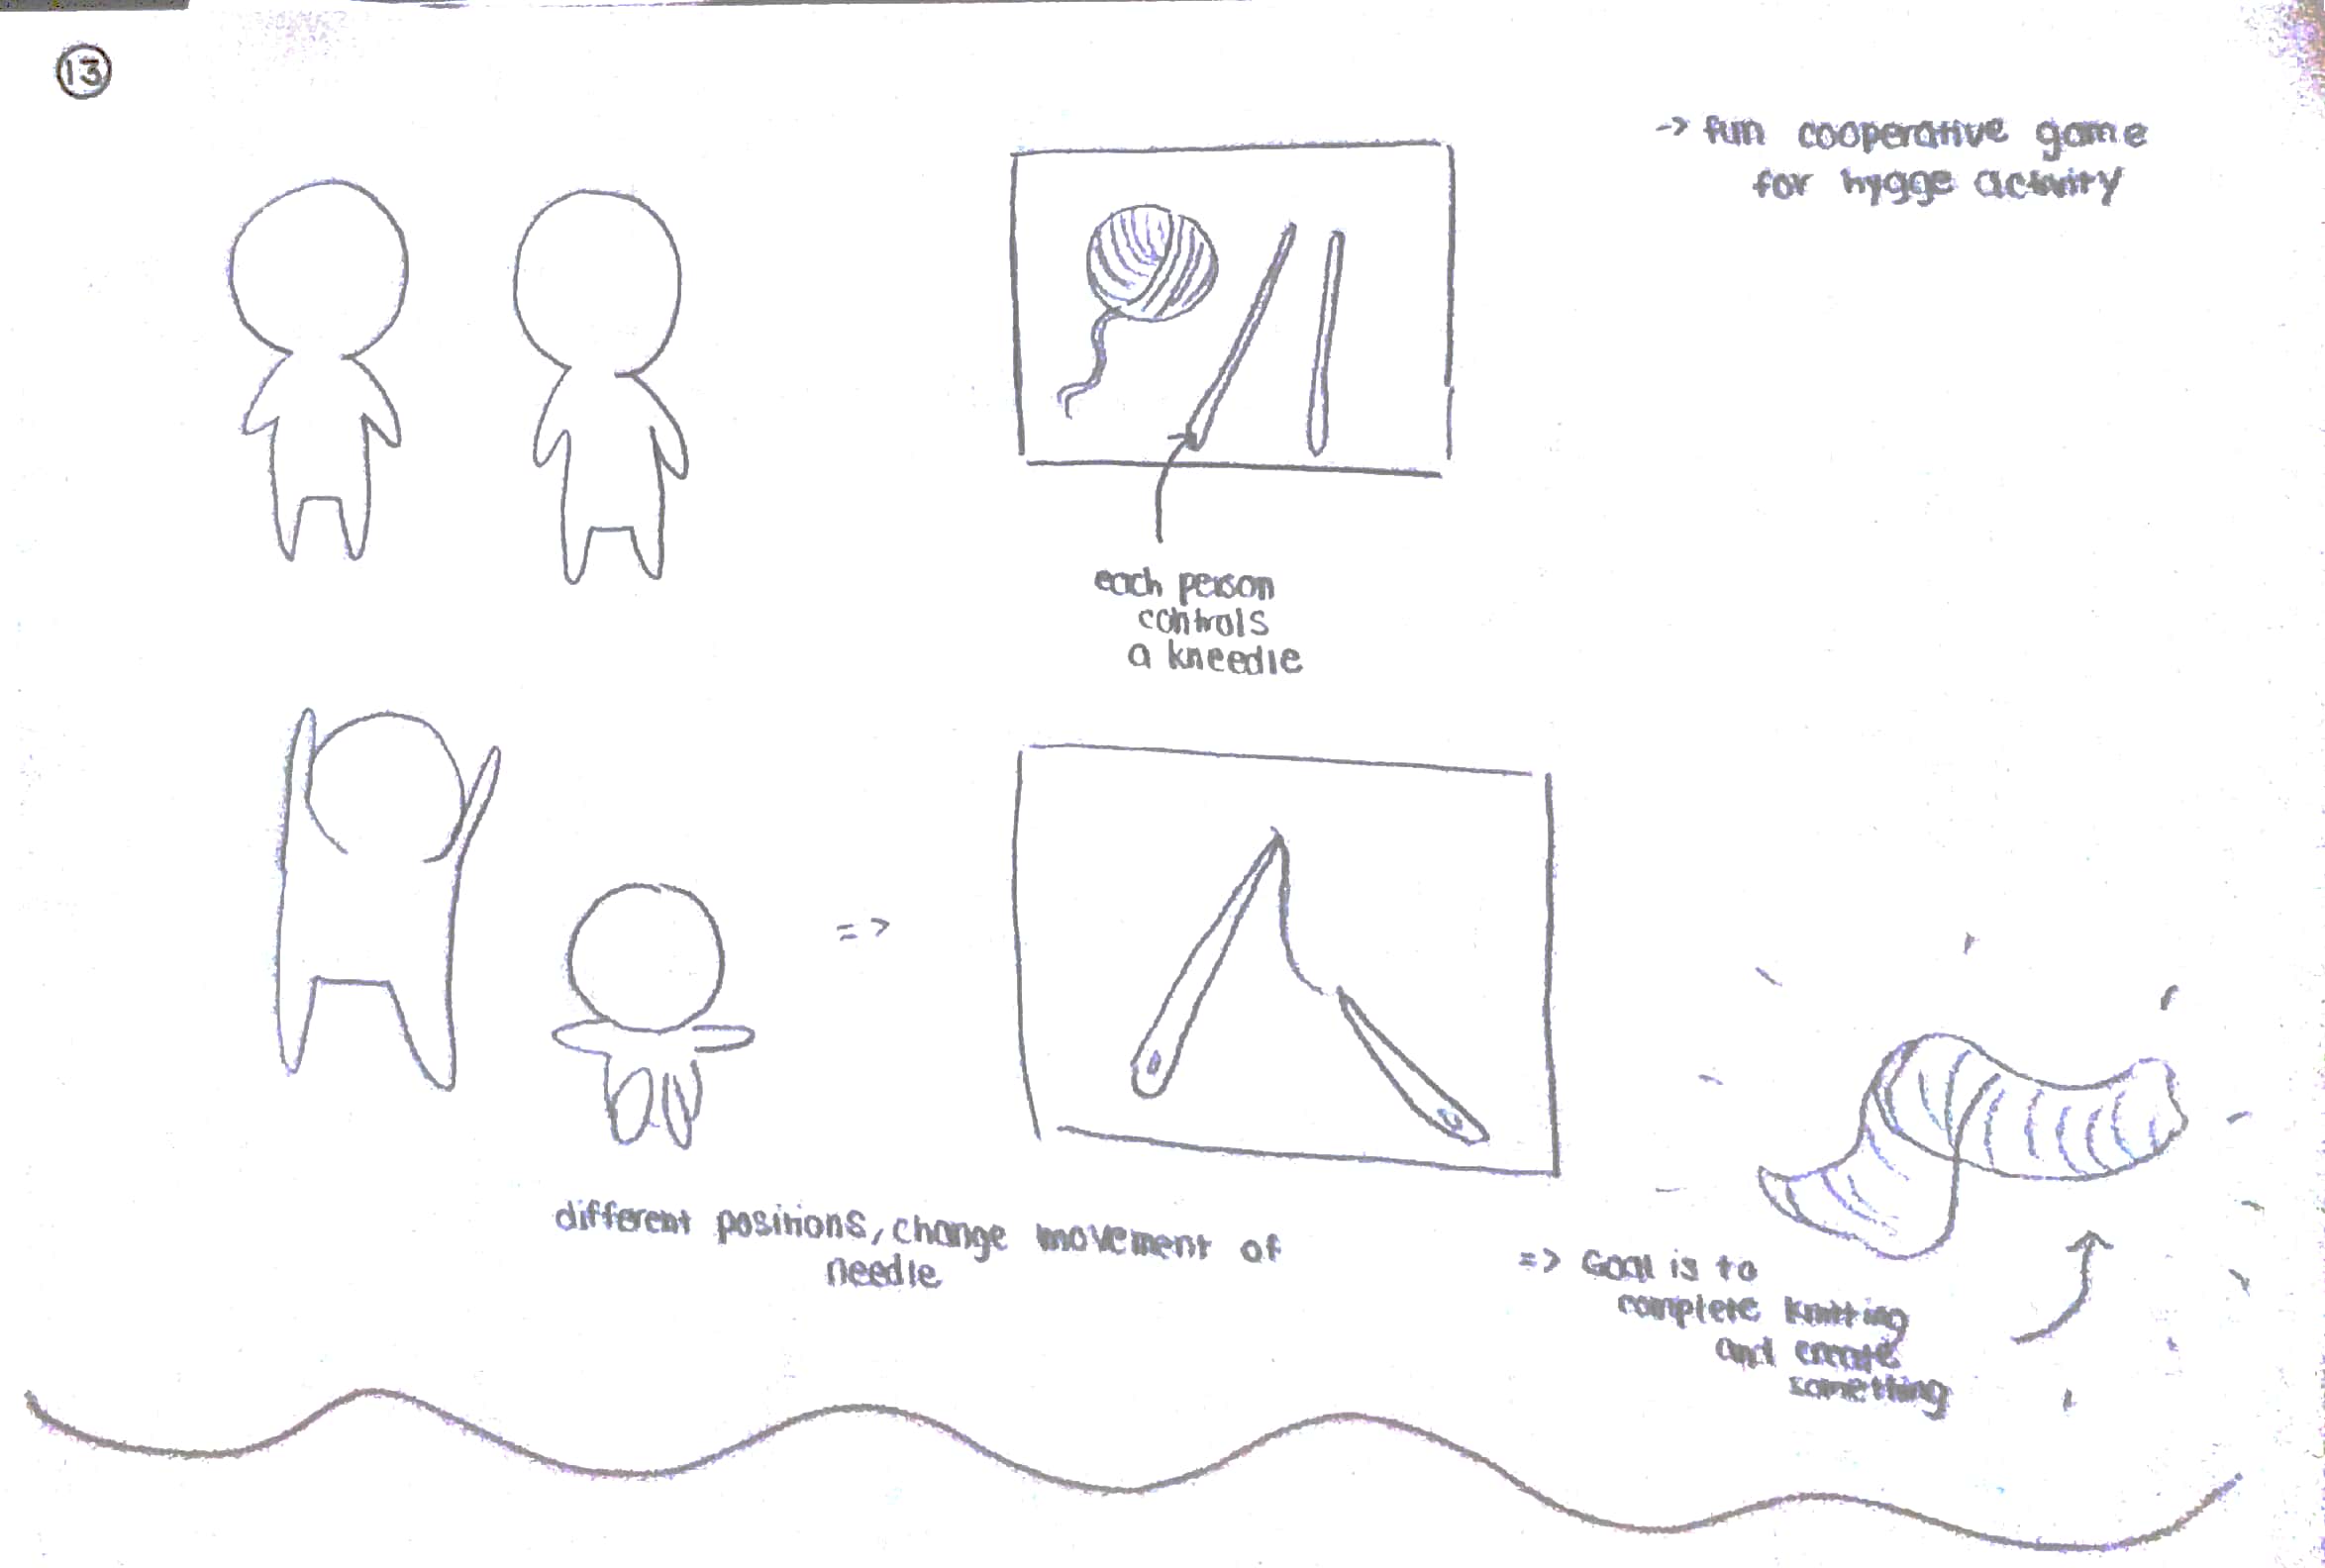 13
-> fun cooperative game
for hygge activity
each person
controls
a kneedle
=>
different positions, change movement of
needle
=> Goal is to
complete knitting
and create
something